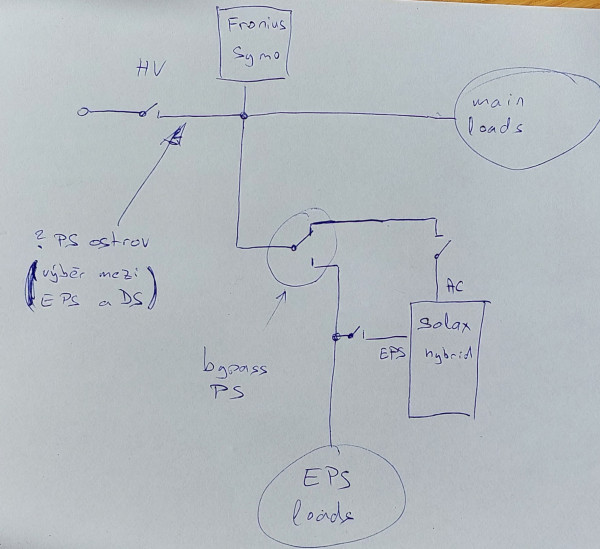 Fronius
Symo
HV
main
loads
? PS ostrov
(výběr mezi
EPS a DS)
AC
Solax
hybrid
EPS
bypass
PS
EPS
loads